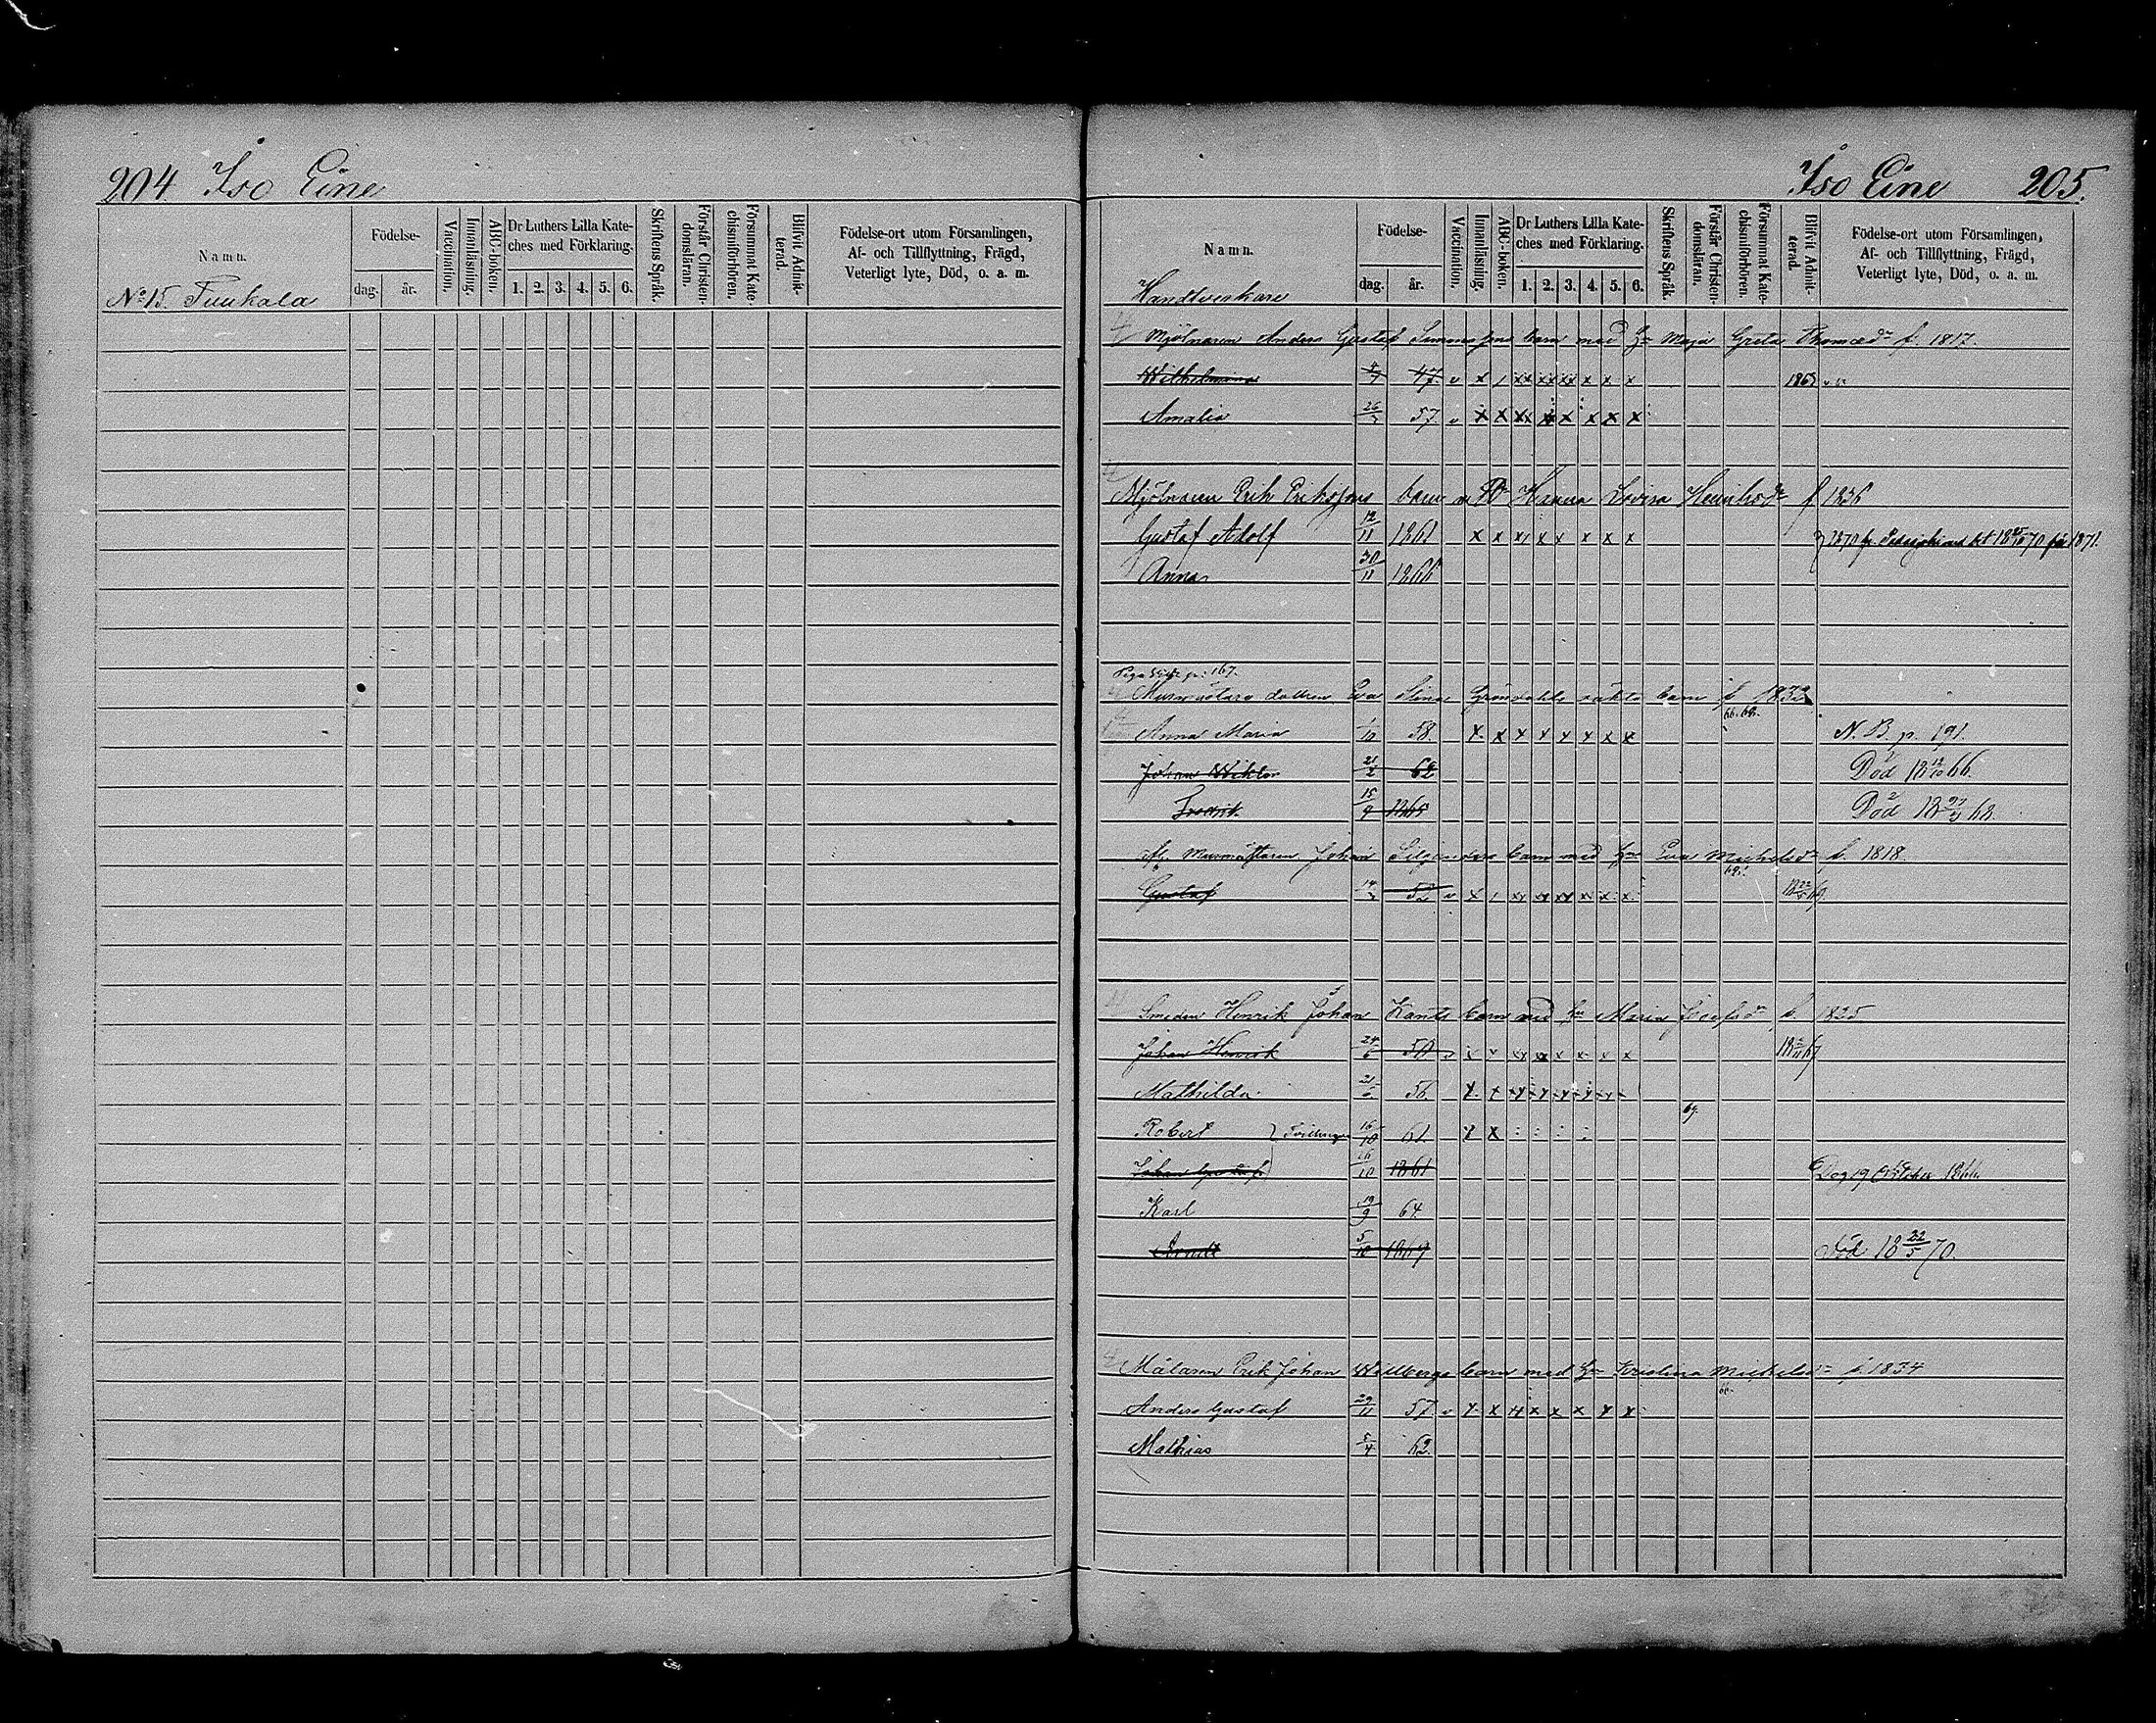 204. Iso Eine
Namn. Födelse- dag. år. Vaccination. Innanläsning. ABC-boken. Dr Luthers Lilla Kateches med Förklaring. 1. 2. 3. 4. 5. 6. Skriftens Språk. Förstår Christendomsläran. Försummat Katechismiförhören. Blifvit Admitterad. Födelse-ort utom Församlingen, Af- och Tillflyttning, Frägd, Veterligt lyte, Död, o. a. m.
No 15. Tuukala
Iso Eine 205.
Namn. Födelse- dag. år. Vaccination. Innanläsning. ABC-boken. Dr Luthers Lilla Kateches med Förklaring. 1. 2. 3. 4. 5. 6. Skriftens Språk. Förstår Christendomsläran. Försummat Katechismiförhören. Blifvit Admitterad. Födelse-ort utom Församlingen, Af- och Tillflyttning, Frägd, Veterligt lyte, Död, o. a. m.
Handtverkare
Mjölnaren Anders Gustaf barn med Maja Greta Thomæd:r f. 1817.
Wilhelmina 47. v x / xx xx xx x x x
Amalia 57. v x x xx x x x x
Mjölnaren Erik Erikssons barn m H:u Hanna Lovisa Henriksd:r f 1836
Gustaf Adolf 12/11 1861 x x x x x x x x
Anna 30/11 1866
167.
Eva Stina Gröndahls oäkta barn f
66. 68.
Anna Maria 58. x x x x x x x x N. B. p. 191.
Johan Wiktor 21/2 62 Död 18 12/10 66.
Fredrik 15/9 1865 Död 18 68.
Afl. Murmästaren Johan barn med H:u Eva Michelsd:r f. 1818.
Gustaf 52 v x / xx xx xx x x x
Smeden Henrik Johan barn med H:u Maria Josefsd:r f. 1825
Johan Henrik 24/6 50 v x x xx x x x x x
Mathilda 56. x x x x x x x
69.
Robert } Tvillingar 16/10 61 x x
Johan Gustaf } 16/10 1861 Dog 19 October 1866.
Karl 19/9 64.
5/10 1869 Död 18 22/5 70.
Målaren Erik Johan barn med H:u Kristina Michelsd:r f. 1834
Anders Gustaf 29/11 57 v x x x x x x x x
Mathias 5/4 62.